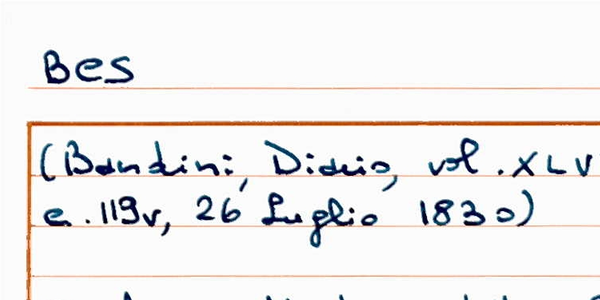 Bes
(Bandini, Diario, vol. XLV
c. 119v, 26 Luglio 1830)